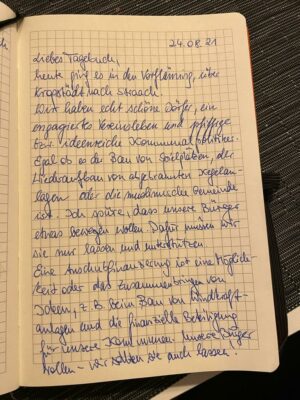 24.08.21
Liebes Tagebuch,
heute ging es in den Vorfläming, über
Kropstädt nach Straach.
Wir haben echt schöne Dörfer, ein
engagiertes Vereinsleben und pfiffige
ideenreiche Kommunalpolitiker.
Egal ob es der Bau von Spielplätzen, der
Wiederaufbau von abgebrannten Kegelan-
lagen oder die Gemeinde
ist. Ich spüre, dass unsere Bürger
etwas bewegen wollen. Dafür müssen wir
sie nur lassen und unterstützen.
Eine Anschubfinanzierung ist eine Möglich-
keit oder das Zusammenbringen von
Ideen, z.B. beim Bau von Windkraft-
anlagen und die finanzielle Beteiligung
für unsere Kommunen. Unsere Bürger
wollen - wir sollten sie auch lassen!